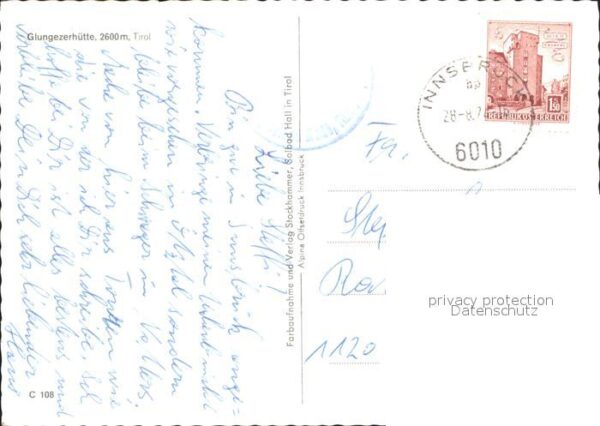 Glungezerhütte, 2600 m, Tirol
Liebe Steffi!
Bin gut in Innsbruck ange-
kommen. Verbringe meinen Urlaub nicht
wie vorgesehen im Ötztal sondern
bleibe beim Schwager in Volders.
Nahe von hier aus Touren wie
die von der ich Dir schreibe. Ich
hoffe bei Dir ist alles bestens und
verbleibe Dein Dich sehr liebender
Hans
C 108
Farbaufnahme und Verlag Stockhammer, Solbad Hall in Tirol
Alpine Offsetdruck Innsbruck
INNSBRUCK
28.-8.7
6010
1.50
REPUBLIK ÖSTERREICH
Fr.
1120
privacy protection
Datenschutz